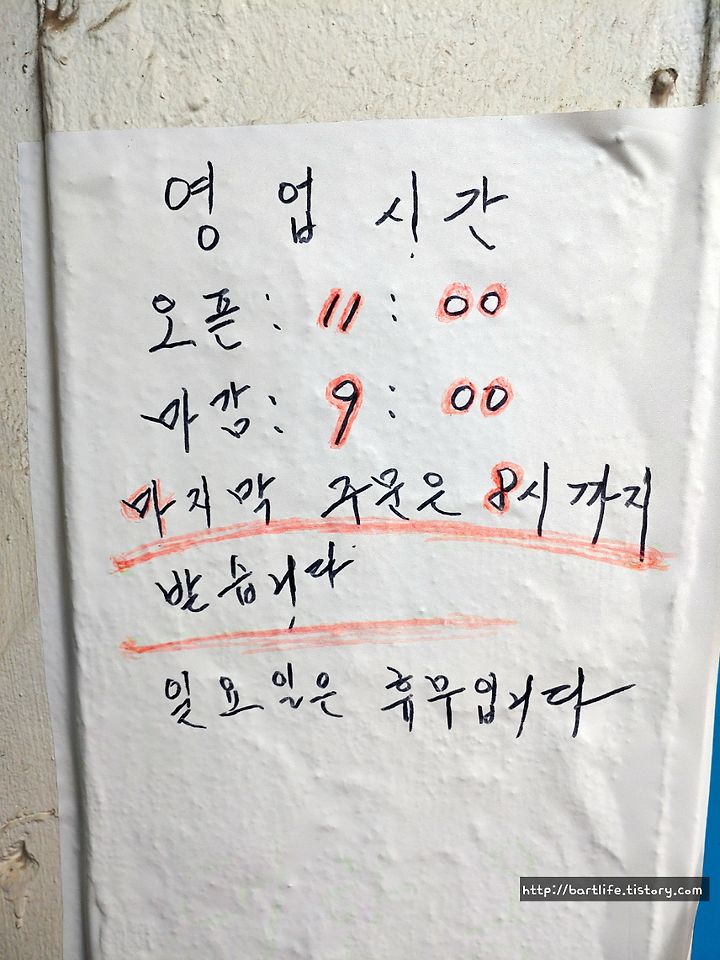 영업시간
오픈: 11:00
마감: 9:00
마지막 주문은 8시까지
받습니다
일요일은 휴무입니다
http://bartlife.tistory.com